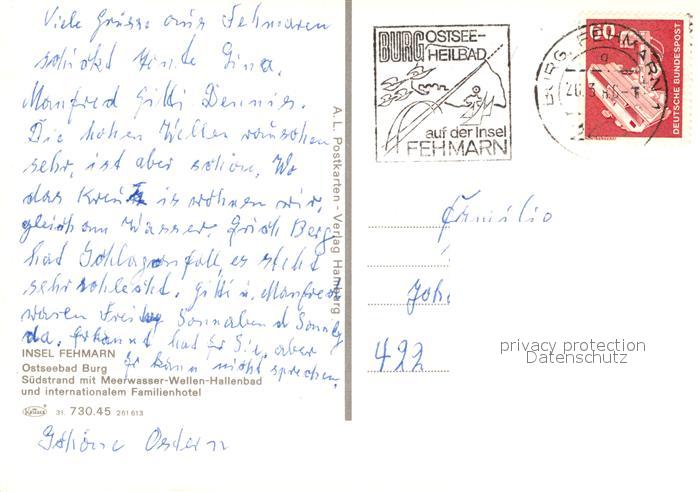 Viele Grüsse aus Fehmaren
schickt Gina,
Manfred Gitti Dennis.
Die hohen Wellen rauschen
sehr, ist aber schön. Wo
das Kreuz is wohnen wir,
gleich am Wasser. Berg
hat Schlaganfall, es steht
sehr schlecht. Gitti u. Manfred
waren Freitag Sonnabend Sonntag
da. Erkannt hat Er Sie, aber
Er kann nicht sprechen.
INSEL FEHMARN
Ostseebad Burg
Südstrand mit Meerwasser-Wellen-Hallenbad
und internationalem Familienhotel
Krüger 31. 730.45 261 613
Schöne Ostern
A. L. Postkarten-Verlag Hamburg
BURG OSTSEE-
HEILBAD
auf der Insel
FEHMARN
BURG, FEHMARN 1
60
DEUTSCHE BUNDESPOST
Familie
Joh
422
privacy protection
Datenschutz